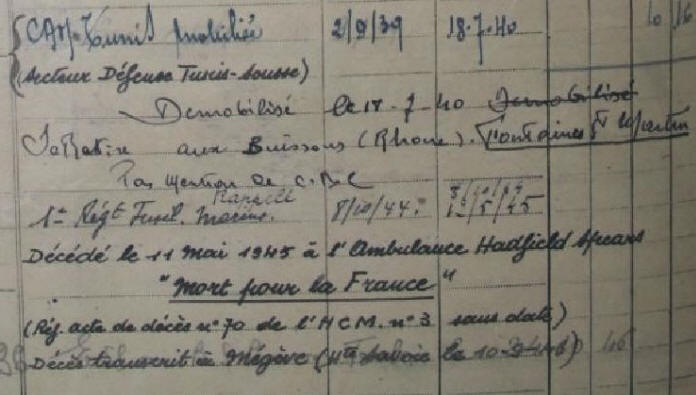 CAM. Tunis mobilisé 2/9/39 18.7.40 10 16
(Secteur Défense Tunis-Sousse)
Démobilisé le 18-7-40 Démobilisé
se Retire aux Buissons (Rhône). Fontaines St Martin
Pas mention de C.B.C
Rappelé
1er Régt Fusil. Marins. 8/10/44
/5/45
Décédé le 11 mai 1945 à l'Ambulance Hadfield Spears
"Mort pour la France"
(Rég. acte de décès n° 70 de l'HCM. n° 3 sans date)
Décès transcrit à Mégève (Hte Savoie le 10-9-46) 46